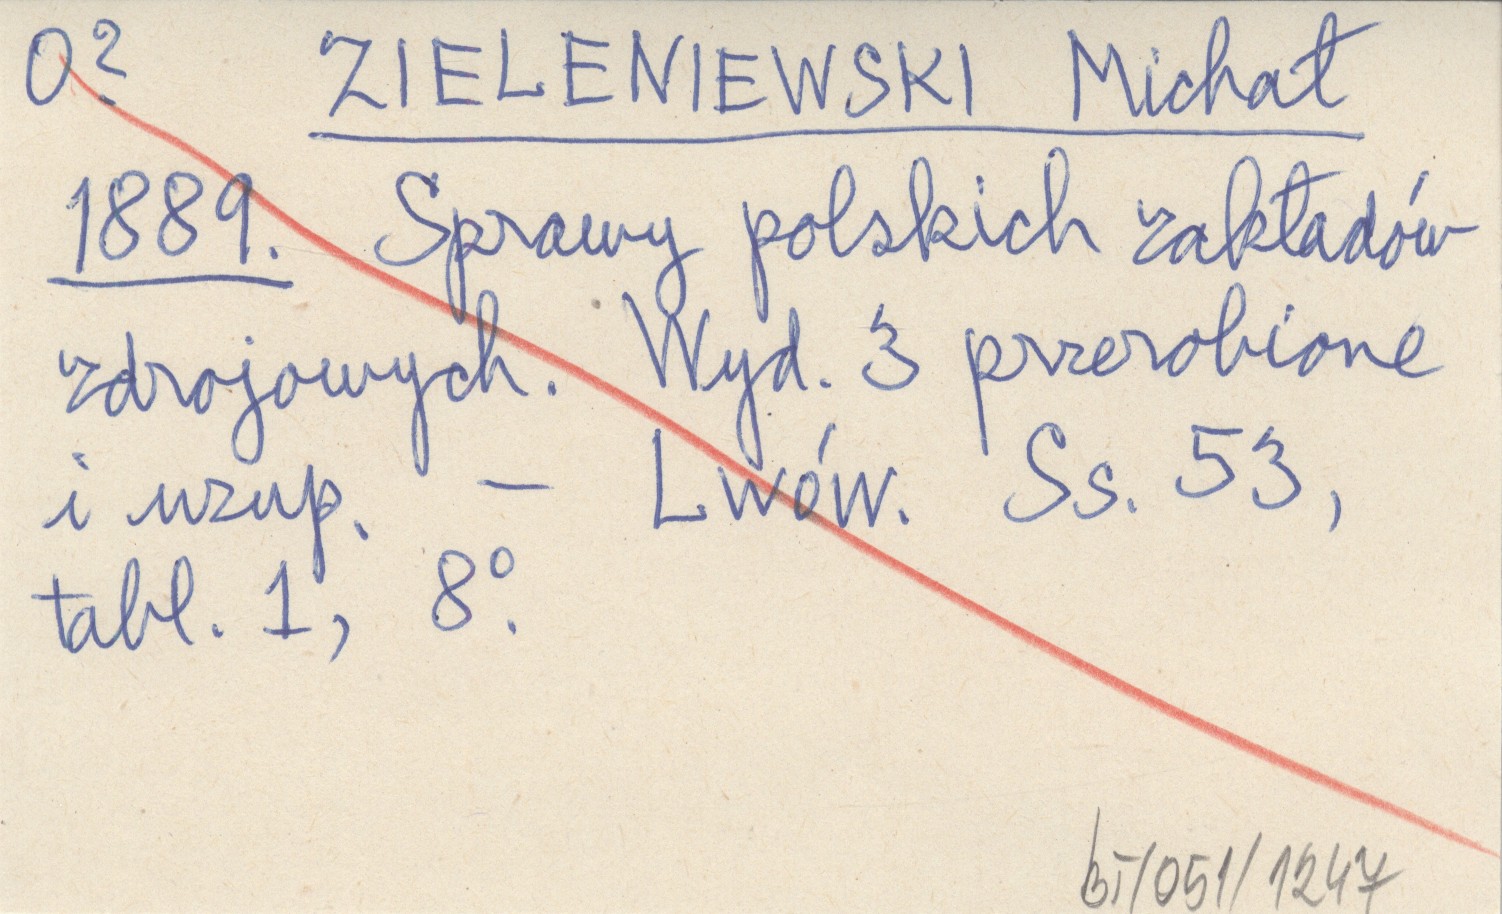 O? ZIELENIEWSKI Michał
1889. Sprawy polskich zakładów
zdrojowych. Wyd. 3 przerobione
i uzup. – Lwów. Ss. 53,
tabl. 1, 8º.
bi/051/1247